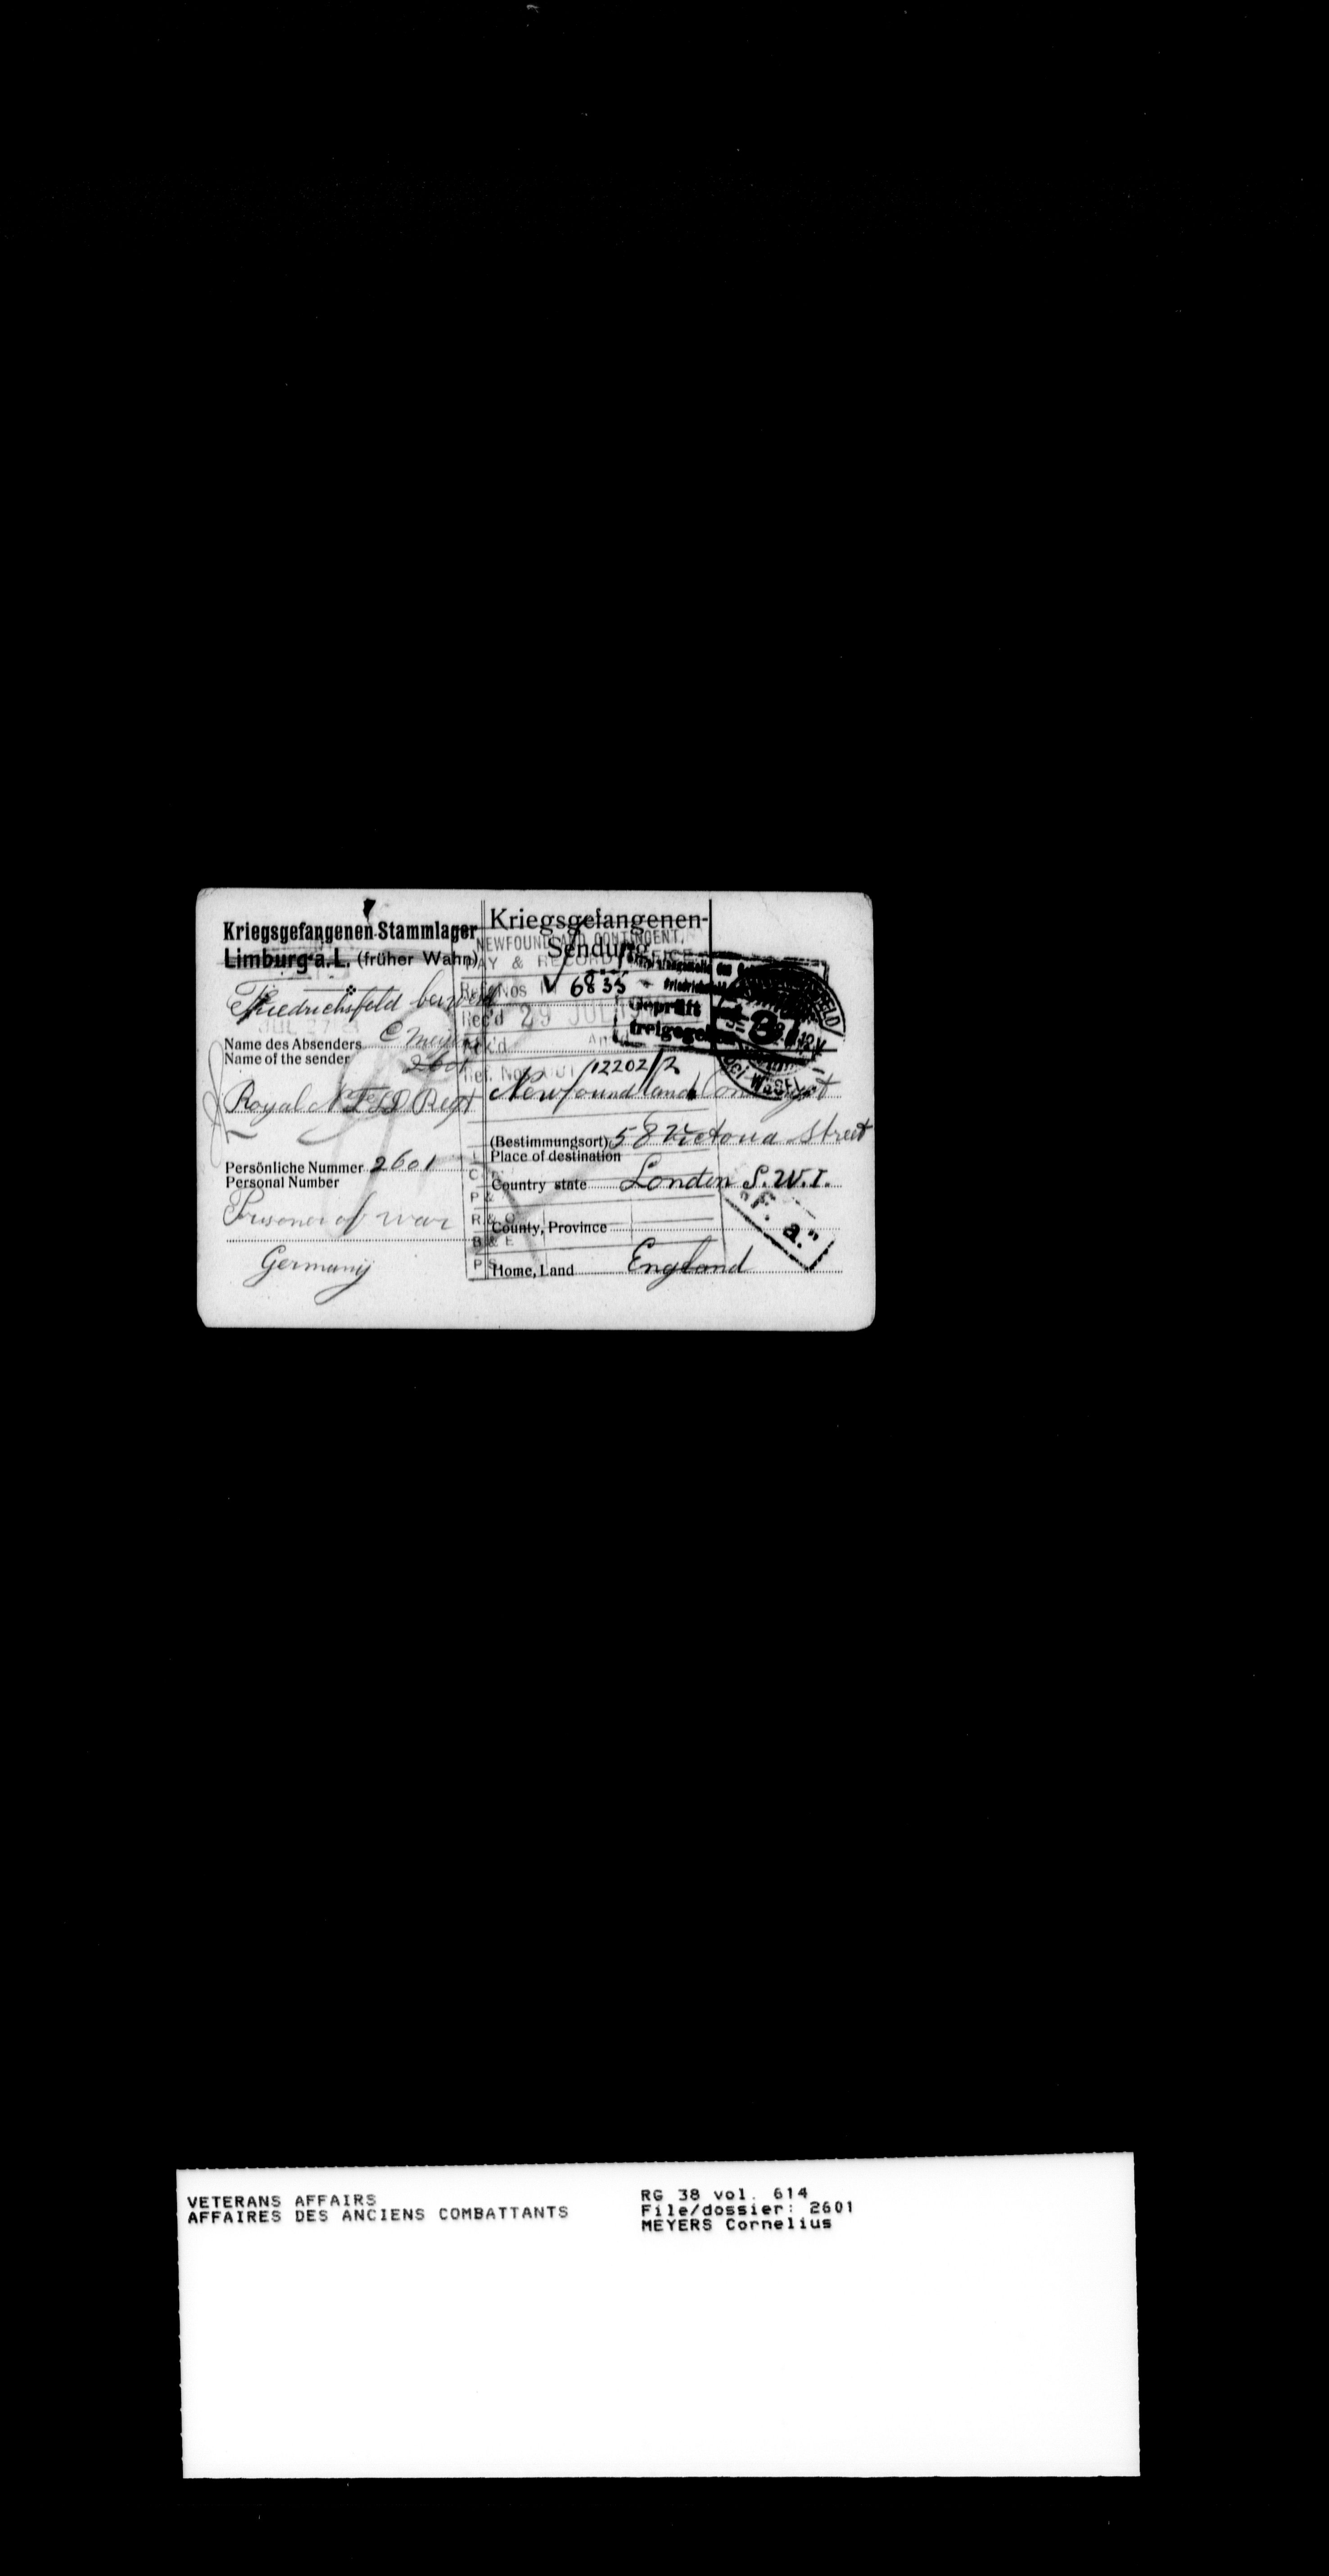 Kriegsgefangenen-Stammlager
Limburg a. L. (früher Wahn)
Friedrichsfeld bei Wesel
JUL 27
Name des Absenders C Meyers
Name of the sender
2601
Royal NFLD Regt
Persönliche Nummer 2601
Personal Number
Prisoner of war
Germany
Kriegsgefangenen-
Sendung
NEWFOUNDLAND CONTINGENT,
PAY & RECORD OFFICE
Ref. Nos 6833
Rec'd 29 JUL
Ack'd
Ref. Nos OUT 12202/2
Geprüft
freigegeben
Newfoundland Contingent
(Bestimmungsort) 58 Victoria Street
Place of destination
Country state London S.W.1.
County, Province
Home, Land England
R & O
B & E
P S
"F. a."
VETERANS AFFAIRS
AFFAIRES DES ANCIENS COMBATTANTS
RG 38 vol. 614
File/dossier: 2601
MEYERS Cornelius